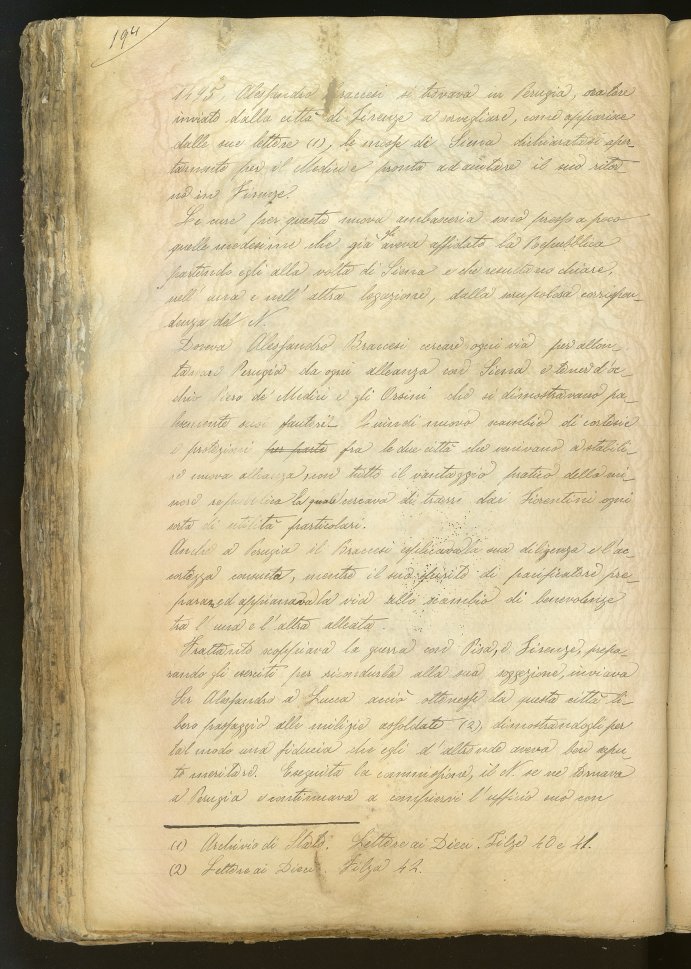 194
1495, Alessandro Braccesi si trovava in Perugia, oratore
inviato dalla città di Firenze a vegliare, come apparisce
dalle sue lettere (1), le mosse di Siena dichiaratasi aper-
tamente per il Medici e pronta ad aiutare il suo ritor-
no in Firenze.
Le cure per questa nuova ambasceria sono presso a poco
quelle medesime che già gli aveva affidato la Repubblica
partendo egli alla volta di Siena e che resultano chiare,
nell' una e nell' altra legazione, dalla scrupolosa corrispon-
denza del N.
Doveva Alessandro Braccesi cercare ogni via per allon-
tanare Perugia da ogni alleanza con Siena e tener d'oc-
chio Piero de' Medici e gli Orsini che si dimostravano pa-
lesemente suoi fautori. Quindi nuovo scambio di cortesie
e protezioni per parte fra le due città che venivano a stabili-
re nuova alleanza non tutto il vantaggio pratico della mi-
nore repubblica la quale cercava di trarre dai Fiorentini ogni
sorta di utilità particolari.
Anche a Perugia il Braccesi esplicava la sua diligenza e l'ac-
cortezza consueta, mentre il suo spirito di pacificatore pre-
parava, ed appianava la via allo scambio di benevolenze
tra l' una e l' altra alleata.
Frattanto scoppiava la guerra con Pisa, e Firenze, prepa-
rando gli eserciti per ricondurla alla sua soggezione, inviava
Ser Alessandro a Lucca acciò ottenesse da questa città li-
bero passaggio alle milizie assoldate (2), dimostrandogli per
tal modo una fiducia che egli d' altronde aveva ben sapu-
to meritare. Eseguita la commissione, il N. se ne tornava
a Perugia e continuava a compiervi l' ufficio suo con
(1) Archivio di Stato. Lettere ai Dieci. Filze 40 e 41.
(2) Lettere ai Dieci. Filza 42.